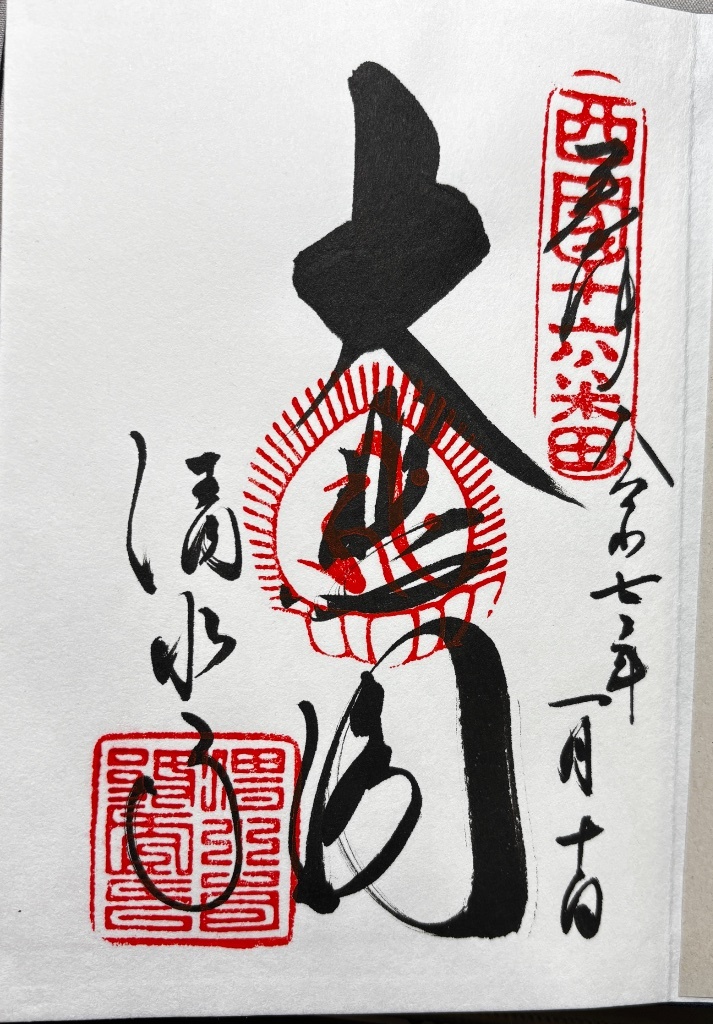 西國十六番
奉拝
令和七年一月十日
大悲閣
清水寺